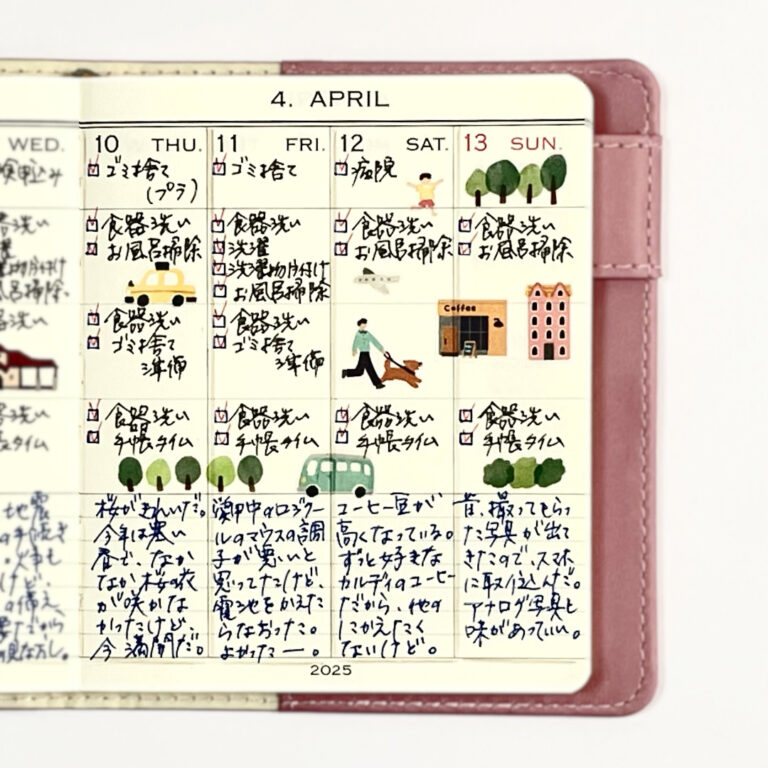 4. APRIL
WED.
申込み
洗い
片付け
洗い
洗い
タイム
地震
けど、
の備え
だから
10 THU.
ゴミ捨て
(プラ)
食器洗い
お風呂掃除
食器洗い
ゴミ捨て
準備
食器洗い
手帳タイム
桜がきれいだ。
今年は寒い
春で、なか
なか桜の花
が咲かな
かったけど、
今満開だ。
11 FRI.
ゴミ捨て
食器洗い
洗濯
洗濯物片付け
お風呂掃除
食器洗い
ゴミ捨て
準備
食器洗い
手帳タイム
中のロジクー
ルのマウスの調
子が悪いと
思ってたけど、
電池をかえた
らなおった。
よかったー。
12 SAT.
病院
食器洗い
お風呂掃除
食器洗い
手帳タイム
コーヒー豆が
高くなっている。
ずっと好きな
カルディのコーヒー
だから、他の
にかえたく
ないけど。
13 SUN.
食器洗い
お風呂掃除
Coffee
食器洗い
手帳タイム
昔、撮ってもらっ
た写真が出て
きたので、スマホ
に取り込んだ。
アナログ写真も
味があっていい。
2025